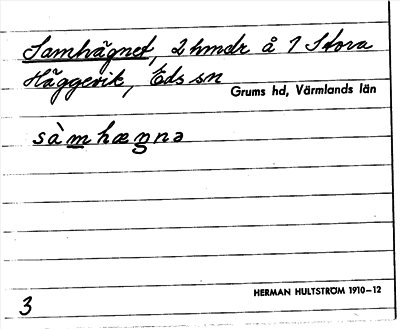 Samhägnet, 2 hmdr å 1 Stora
Häggevik, Eds sn
Grums hd, Värmlands län
sàmhæŋnə
HERMAN HULTSTRÖM 1910–12
3